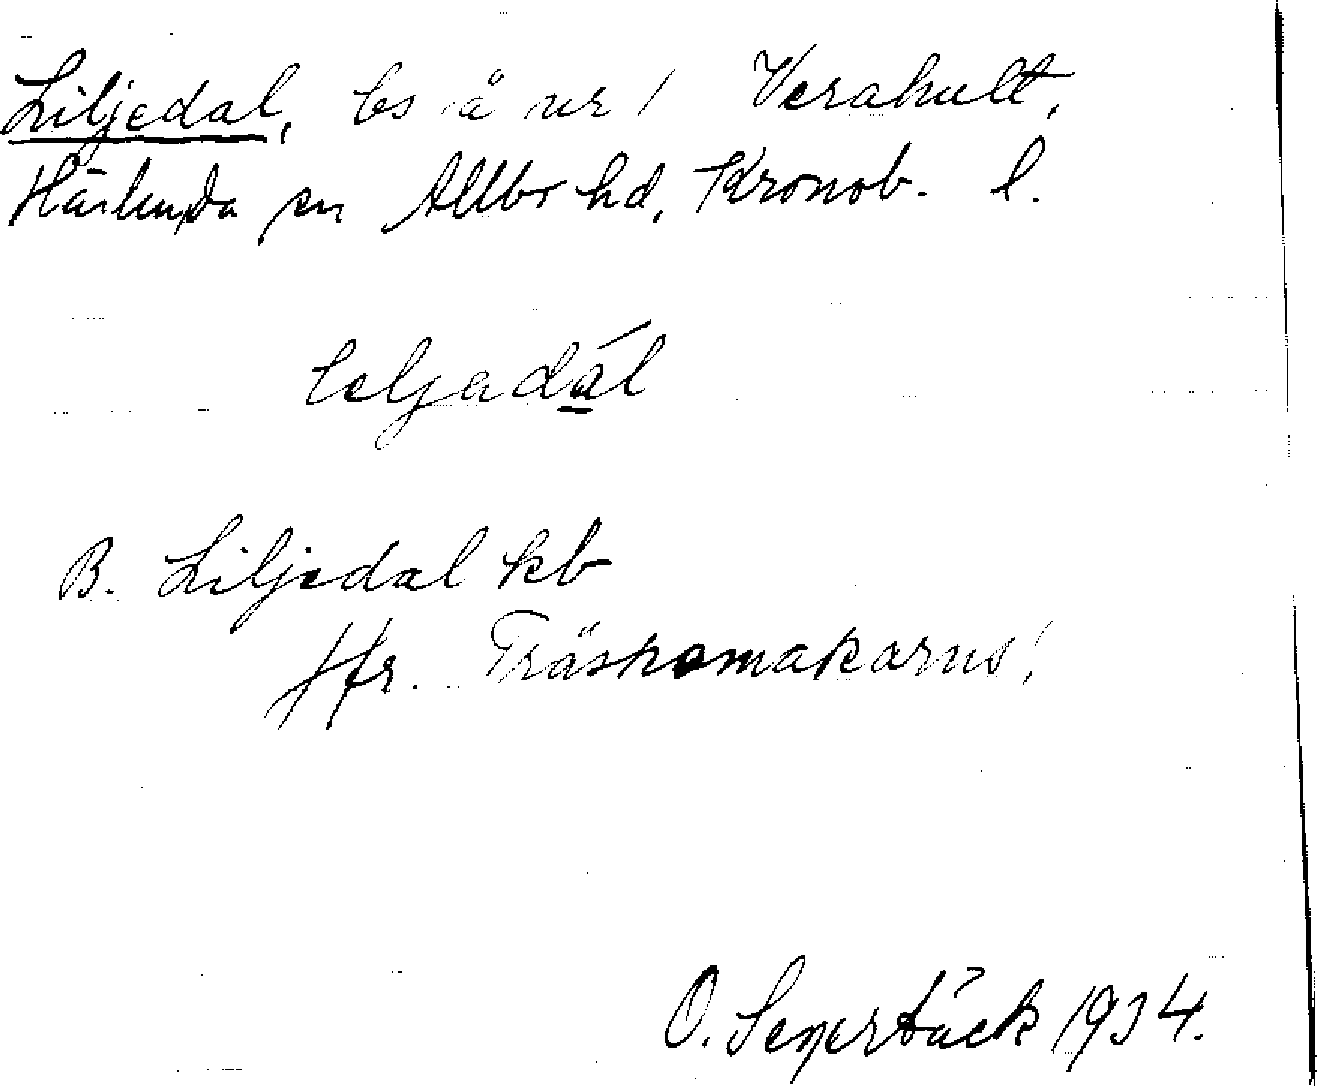 Liljedal, ls å nr 1 Verahult,
Härlunda sn Allbo hd, Kronob. l.
leljadál
B. Liljedal kb
Jfr. Träskomakarns!
O. 1934.